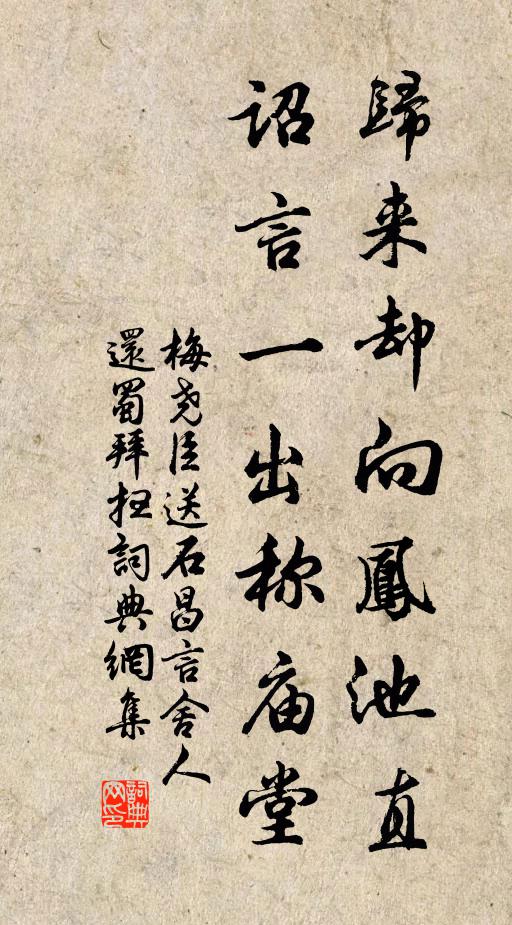 歸来却向鳳池直
詔言一出称庙堂
梅尧臣送石昌言舍人
還蜀拜扫詞典網集
詞典网印